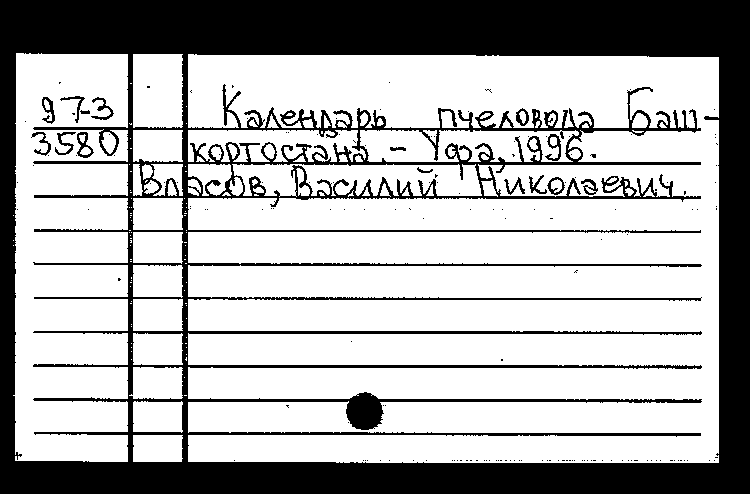 97-3 Календарь пчеловода Баш-
3580 кортостана. - Уфа, 1996.
Власов, Василий Николаевич.